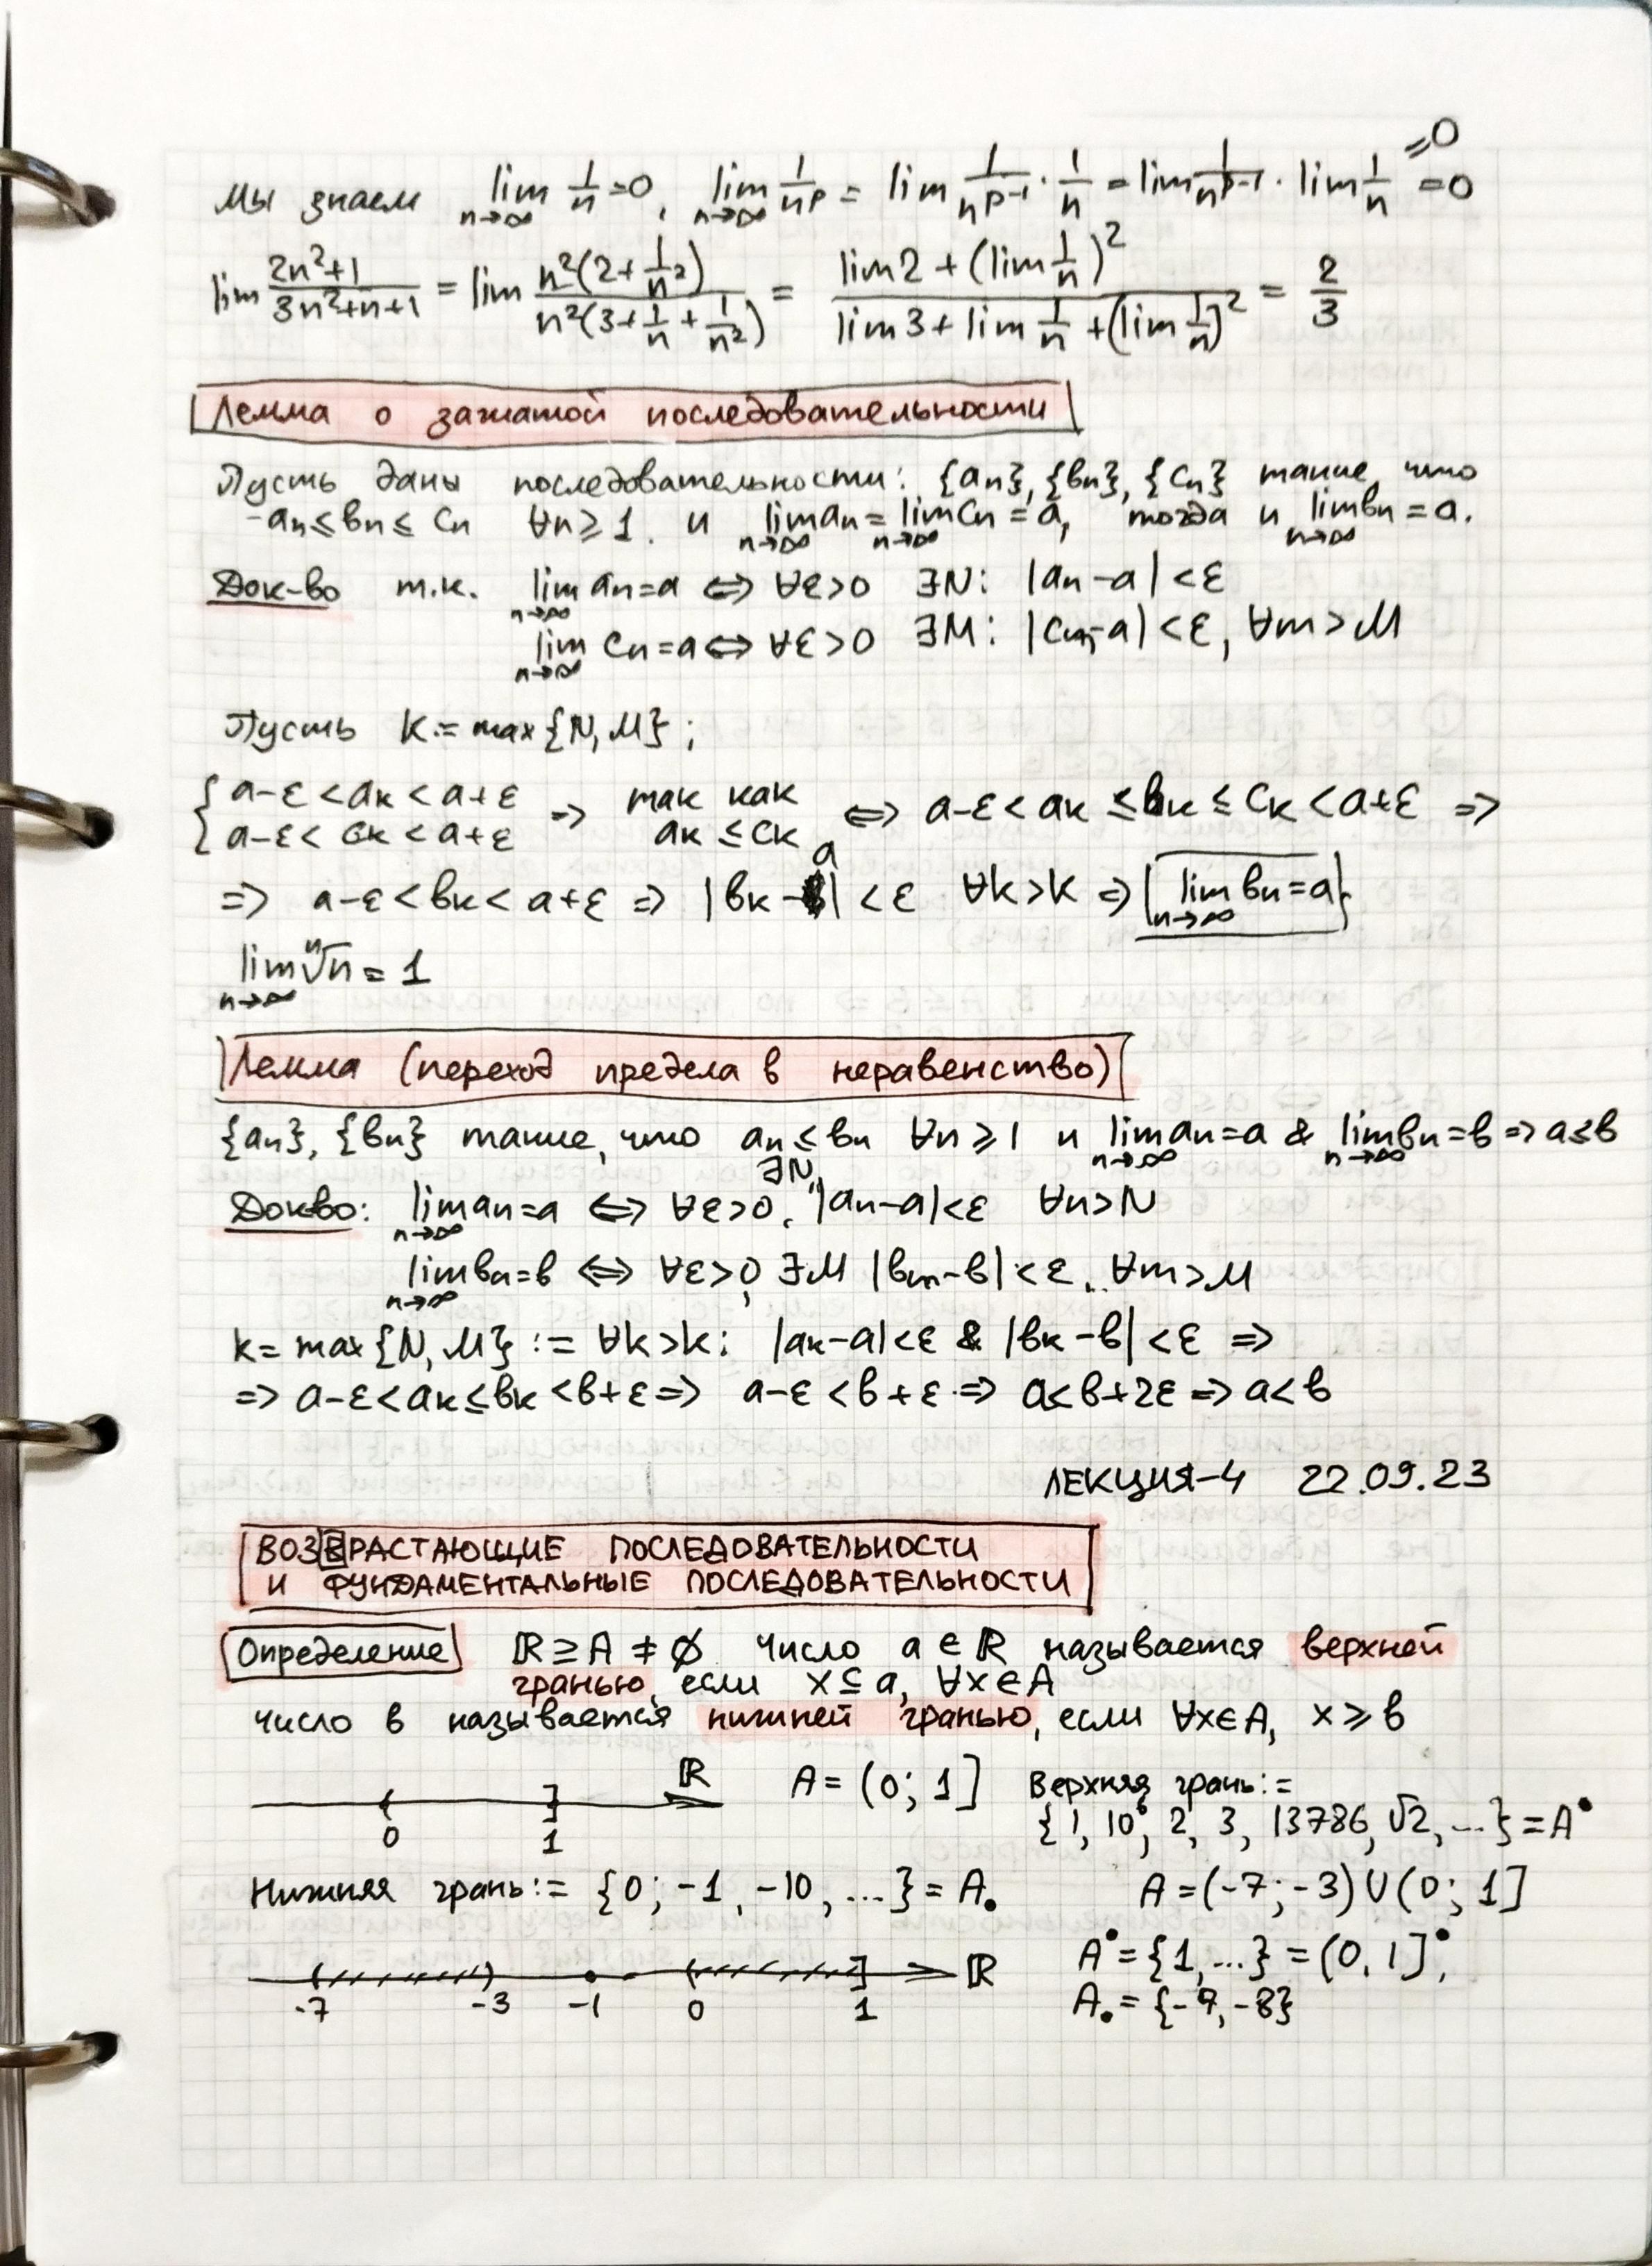 Мы знаем lim n→∞ 1/n =0, lim n→∞ 1/n^p = lim 1/n^(p-1) · 1/n = lim 1/n^(p-1) · lim 1/n =0 =0
lim (2n²+1)/(3n²+n+1) = lim n²(2+1/n²)/n²(3+1/n+1/n²) = (lim 2 + (lim 1/n)²)/(lim 3 + lim 1/n + (lim 1/n)²) = 2/3
Лемма о зажатой последовательности
Пусть даны последовательности: {an}, {bn}, {cn} такие, что
an ≤ bn ≤ cn ∀n ≥ 1. и lim n→∞ an = lim n→∞ cn = a, тогда и lim n→∞ bn = a.
Док-во т.к. lim n→∞ an = a ⇔ ∀ε>0 ∃N: |an - a| < ε
lim n→∞ cn = a ⇔ ∀ε>0 ∃M: |cm - a| < ε, ∀m > M
Пусть K := max{N, M};
{ a-ε < ak < a+ε ⇒ так как ⇔ a-ε < ak ≤ bk ≤ ck < a+ε ⇒
a-ε < ck < a+ε ak ≤ ck
⇒ a-ε < bk < a+ε ⇒ |bk - a| < ε ∀k > K ⇒ lim n→∞ bn = a
lim n→∞ ⁿ√n = 1
Лемма (переход предела в неравенство)
{an}, {bn} такие, что an ≤ bn ∀n ≥ 1 и lim n→∞ an = a & lim n→∞ bn = b ⇒ a ≤ b
Докво: lim n→∞ an = a ⇔ ∀ε>0, ∃N |an - a| < ε ∀n > N
lim n→∞ bn = b ⇔ ∀ε>0, ∃M |bm - b| < ε, ∀m > M
k = max{N, M} := ∀k > k: |ak - a| < ε & |bk - b| < ε ⇒
⇒ a-ε < ak ≤ bk < b+ε ⇒ a-ε < b+ε ⇒ a < b+2ε ⇒ a < b
ЛЕКЦИЯ-4 22.09.23
ВОЗВРАСТАЮЩИЕ ПОСЛЕДОВАТЕЛЬНОСТИ
И ФУНДАМЕНТАЛЬНЫЕ ПОСЛЕДОВАТЕЛЬНОСТИ
Определение ℝ ≥ A ≠ ∅ число a ∈ ℝ называется верхней
гранью, если x ≤ a, ∀x ∈ A
число b называется нижней гранью, если ∀x ∈ A, x ≥ b
ℝ A = (0; 1] Верхняя грань:=
0 1 {1, 10⁶, 2, 3, 13786, √2, ...} = A•
Нижняя грань:= {0; -1, -10, ...} = A• A = (-7; -3) ∪ (0; 1]
ℝ A• = {1, ...} = (0, 1]•,
-7 -3 -1 0 1 A• = {-9, -8}